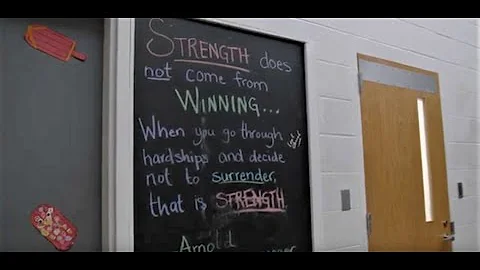 STRENGTH does
not come from
WINNING...
When you go through
hardships and decide
not to surrender,
that is STRENGTH
Arnold